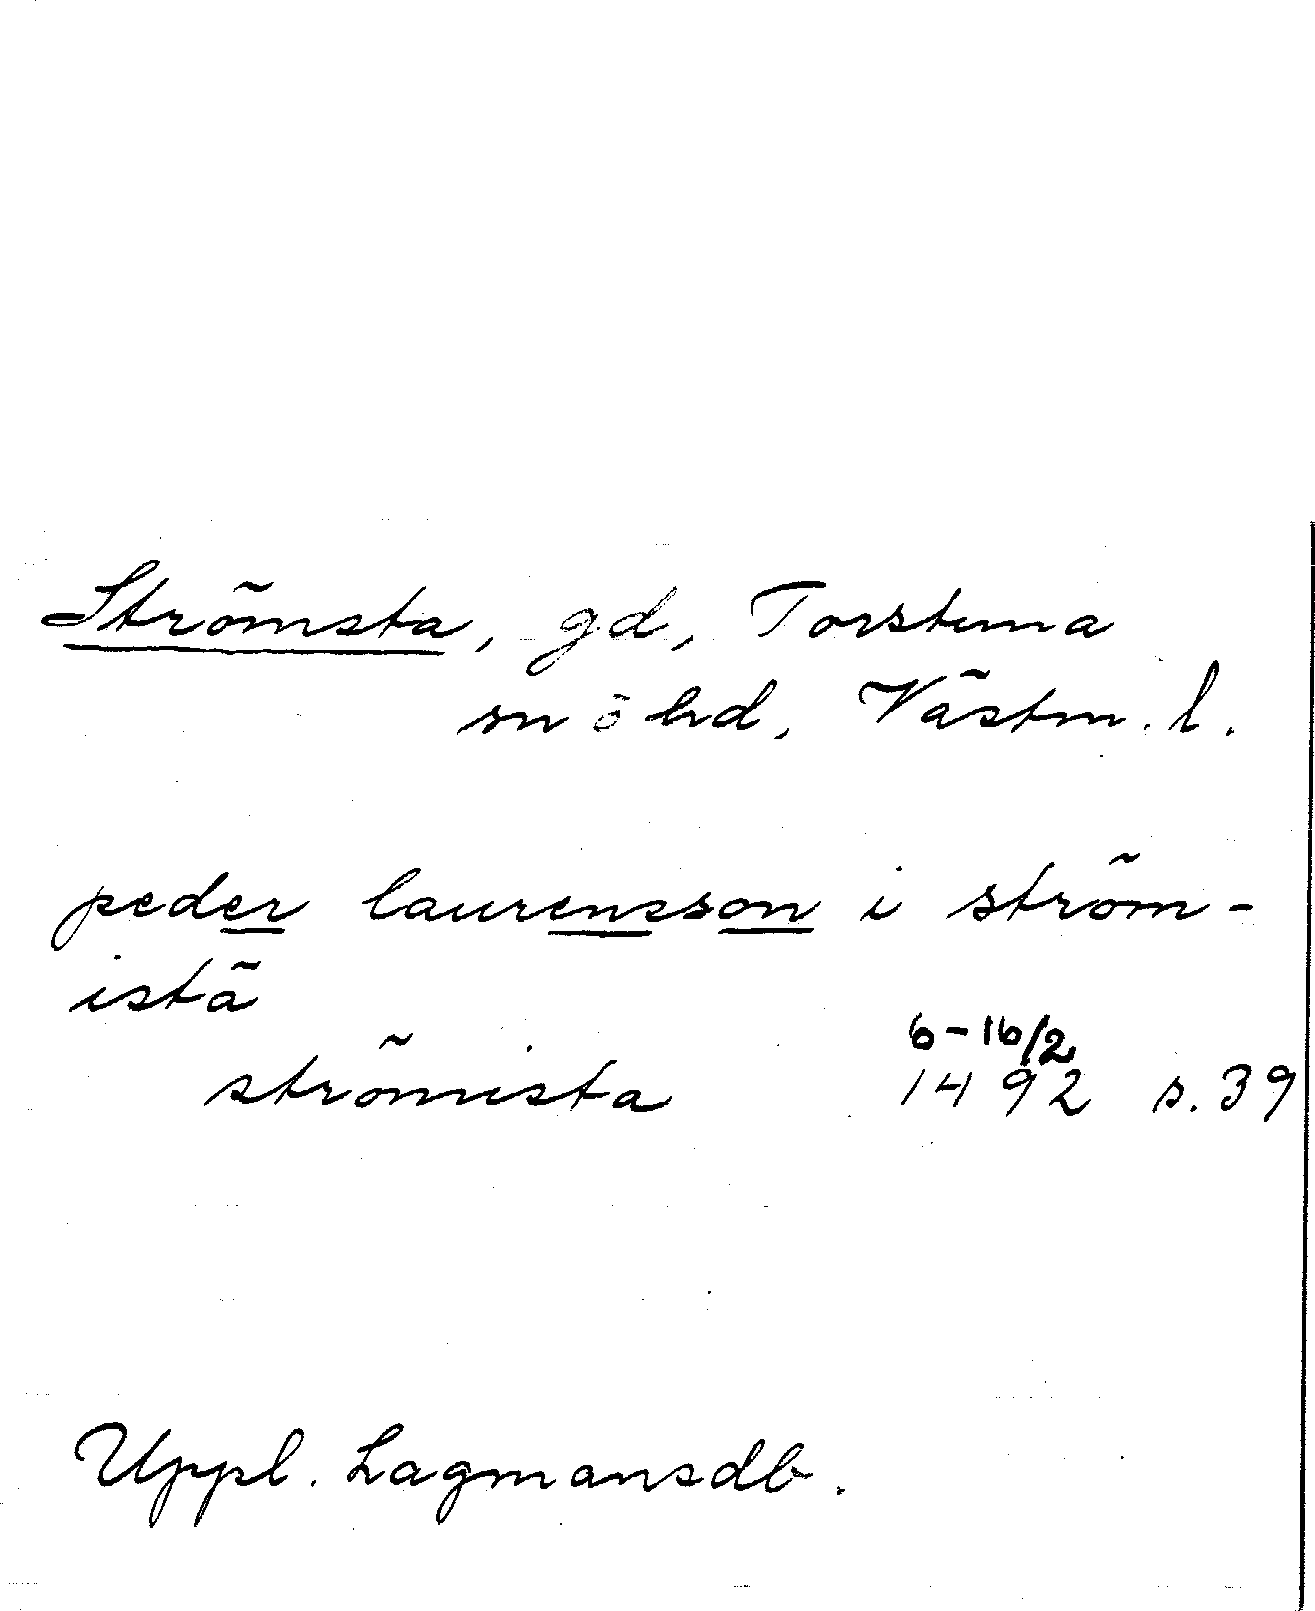 Strömsta, gd, Torstuna
sn ö hd, Västm. l.
peder laurensson i ström-
istä
strömista
6-16/2
1492 s. 39
Uppl. Lagmansdb.